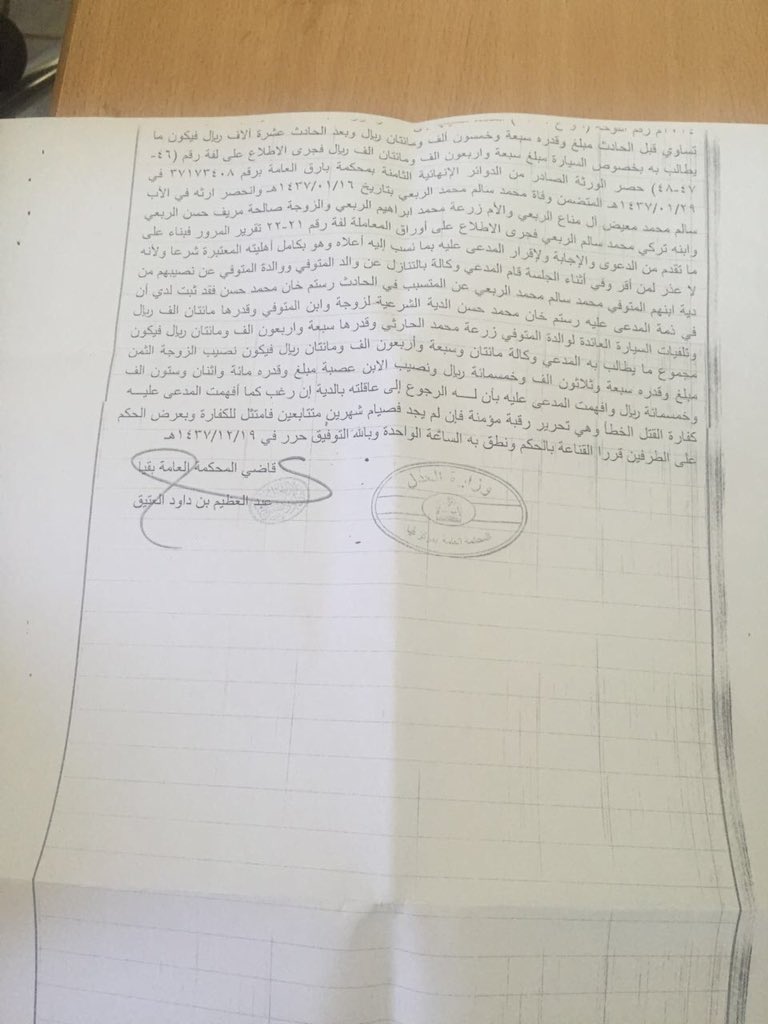 تساوي قبل الحادث مبلغ وقدره سبعة وخمسون ألف ومائتان ريال وبعد الحادث عشرة الاف ريال فيكون ما
يطالب به بخصوص السيارة مبلغ سبعة واربعون الف ومائتان الف ريال فجرى الاطلاع على لفة رقم (٤٦-
٤٧-٤٨) حصر الورثة الصادر من الدوائر الإنهائية الثامنة بمحكمة بارق العامة برقم ٣٧١٧٣٤٠٨ في
١٤٣٧/٠١/٢٩هـ المتضمن وفاة محمد سالم محمد الربعي بتاريخ ١٤٣٧/٠١/١٦هـ وانحصر ارثه في الأب
سالم محمد معيض آل مناع الربعي والأم زرعة محمد ابراهيم الربعي والزوجة صالحة مريف حسن الربعي
وابنه تركي محمد سالم الربعي فجرى الاطلاع على أوراق المعاملة لفة رقم ٢١-٢٢ تقرير المرور فبناء على
ما تقدم من الدعوى والإجابة ولإقرار المدعى عليه بما نسب إليه أعلاه وهو بكامل أهليته المعتبرة شرعا ولأنه
لا عذر لمن أقر وفي أثناء الجلسة قام المدعي وكالة بالتنازل عن والد المتوفي ووالدة المتوفي عن نصيبهم من
دية ابنهم المتوفي محمد سالم محمد الربعي عن المتسبب في الحادث رستم خان محمد حسن فقد ثبت لدي أن
في ذمة المدعى عليه رستم خان محمد حسن الدية الشرعية لزوجة وابن المتوفي وقدرها مائتان الف ريال
وتلفيات السيارة العائدة لوالدة المتوفي زرعة محمد الحارثي وقدرها سبعة واربعون الف ومائتان ريال فيكون
مجموع ما يطالب به المدعي وكالة مائتان وسبعة وأربعون الف ومائتان ريال فيكون نصيب الزوجة الثمن
مبلغ وقدره سبعة وثلاثون الف وخمسمائة ريال ونصيب الابن عصبة مبلغ وقدره مائة واثنان وستون الف
وخمسمائة ريال وافهمت المدعى عليه بأن لـــه الرجوع إلى عاقلته بالدية إن رغب كما أفهمت المدعى عليـــه
كفارة القتل الخطأ وهي تحرير رقبة مؤمنة فإن لم يجد فصيام شهرين متتابعين فامتثل للكفارة وبعرض الحكم
على الطرفين قررا القناعة بالحكم ونطق به الساعة الواحدة وبالله التوفيق حرر في ١٤٣٧/١٢/١٩هـ
قاضي المحكمة العامة بقيا
عبد العظيم بن داود العتيق
وزارة العدل
المحكمة العامة بمركز قيا